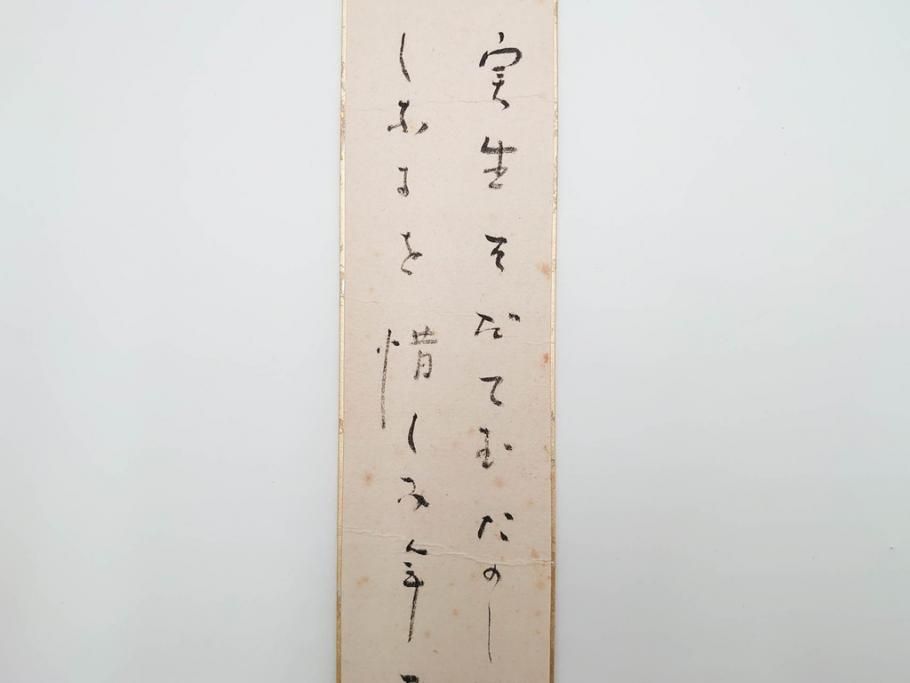 実生そだてむたのし
を惜しみ年